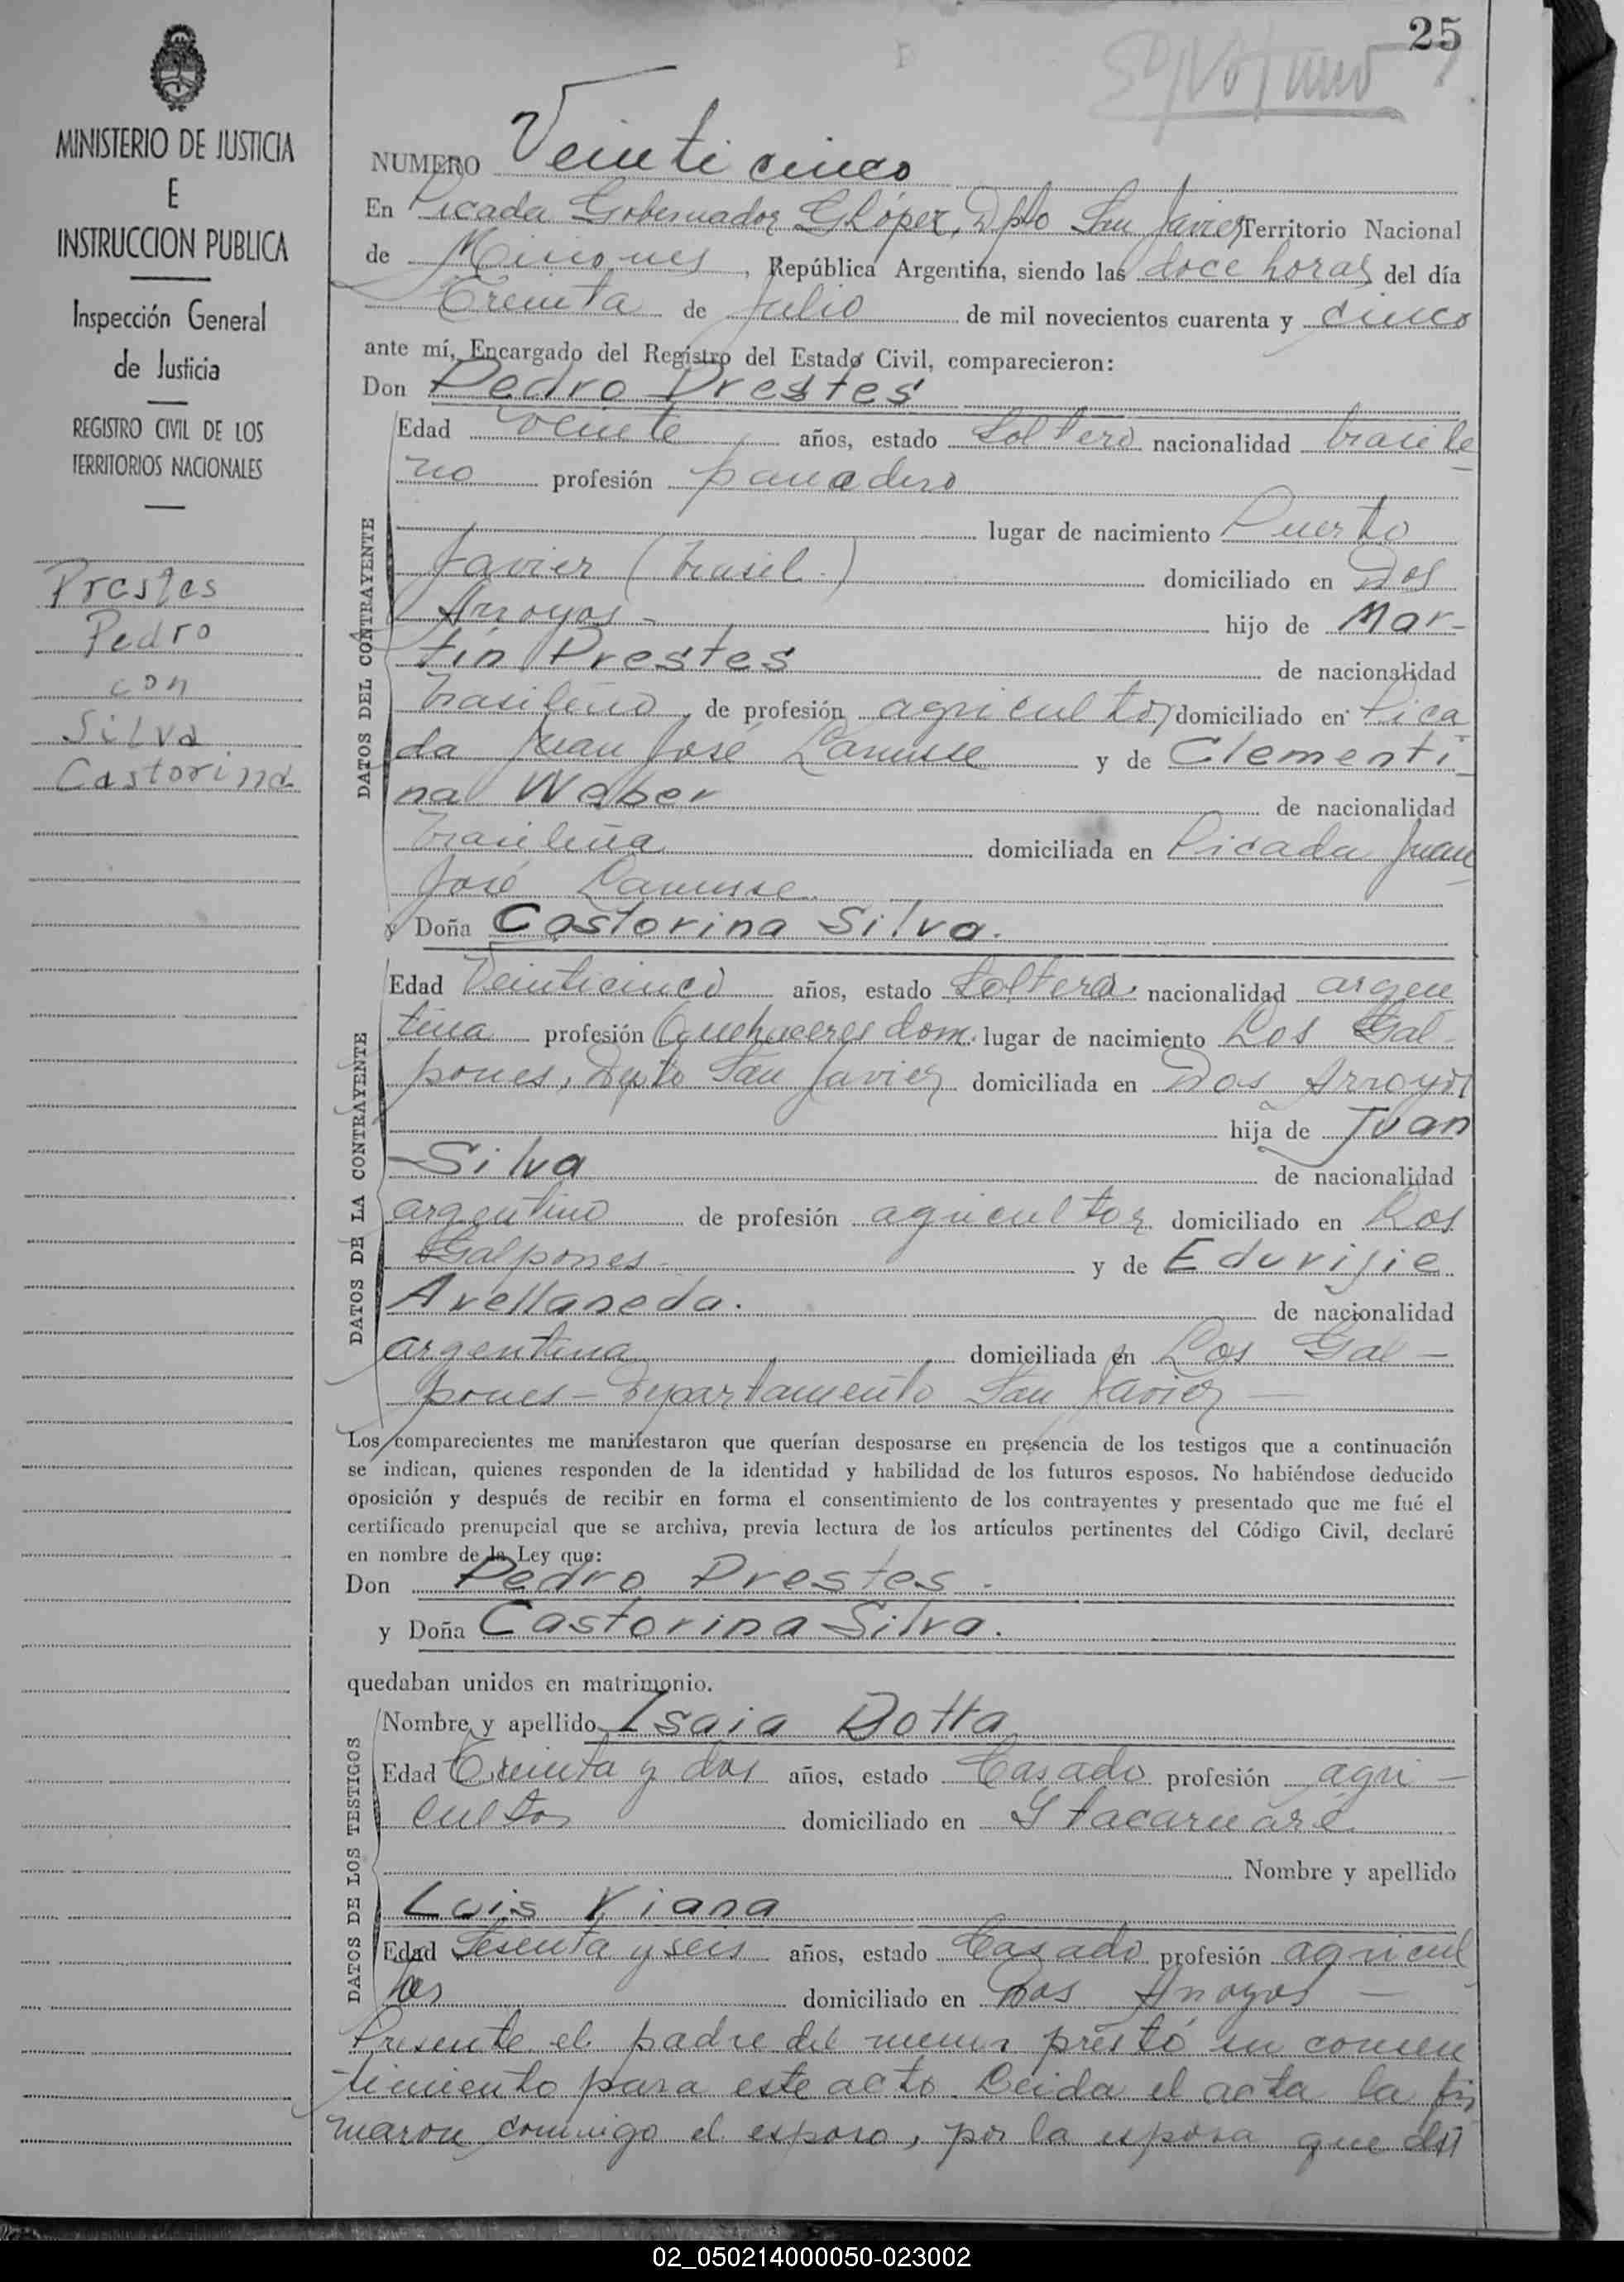 25
MINISTERIO DE JUSTICIA
E
INSTRUCCION PUBLICA
Inspección General
de Justicia
REGISTRO CIVIL DE LOS
TERRITORIOS NACIONALES
Prestes
Pedro
con
Silva
Castorina
NUMERO Veinticinco
En Picada Gobernador G López, Dpto San Javier Territorio Nacional
de Misiones, República Argentina, siendo las doce horas del día
Treinta de Julio de mil novecientos cuarenta y cinco
ante mí, Encargado del Registro del Estado Civil, comparecieron:
Don Pedro Prestes
DATOS DEL CONTRAYENTE
Edad veinte años, estado Soltero nacionalidad brasile
no profesión panadero
lugar de nacimiento Puerto
Javier (brasil.) domiciliado en Dos
Arroyos - hijo de Mar-
tín Prestes de nacionalidad
brasileño, de profesión agricultor, domiciliado en Pica
da Juan José Lanusse y de Clementi-
na Weber de nacionalidad
brasileña domiciliada en Picada Juan
José Lanusse.
y Doña Castorina Silva.
DATOS DE LA CONTRAYENTE
Edad Veinticinco años, estado Soltera nacionalidad argen
tina profesión Quehaceres dom. lugar de nacimiento Los Gal-
pones, Depto San Javier domiciliada en Dos Arroyos
hija de Juan
Silva de nacionalidad
argentino de profesión agricultor domiciliado en Los
Galpones. y de Eduvijie
Avellaneda. de nacionalidad
argentina domiciliada en Los Gal-
pones - Departamento San Javier -
Los comparecientes me manifestaron que querían desposarse en presencia de los testigos que a continuación
se indican, quienes responden de la identidad y habilidad de los futuros esposos. No habiéndose deducido
oposición y después de recibir en forma el consentimiento de los contrayentes y presentado que me fué el
certificado prenupcial que se archiva, previa lectura de los artículos pertinentes del Código Civil, declaré
en nombre de la Ley que:
Don Pedro Prestes.
y Doña Castorina Silva.
quedaban unidos en matrimonio.
DATOS DE LOS TESTIGOS
Nombre y apellido Isaia Dotta
Edad Treinta y dos años, estado Casado profesión agri-
cultor domiciliado en Itacaruaré
Nombre y apellido
Luis Viana
Edad Sesenta y seis años, estado Casado profesión agricul
tor domiciliado en Dos Arroyos -
Presente el padre del menor prestó su consen
timiento para este acto. Leida el acta la fir
maron conmigo el esposo, por la esposa que dijo
02_050214000050-023002